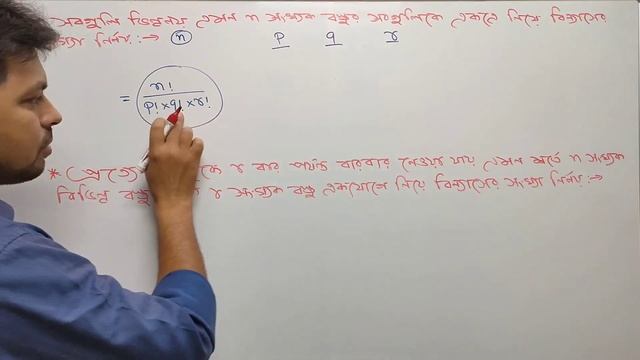 সবগুলি ভিন্ন নয় এমন n সংখ্যক বস্তুর সবগুলিকে একত্রে নিয়ে বিন্যাসের
সংখ্যা নির্ণয়:→ n p q r
n!
= p! × q! × r!
* প্রত্যে কে r বার পর্যন্ত বারবার নেওয়া যায় এমন শর্তে n সংখ্যক
বিভিন্ন বস্তু r সংখ্যক বস্তু একযোগে নিয়ে বিন্যাসের সংখ্যা নির্ণয়:→